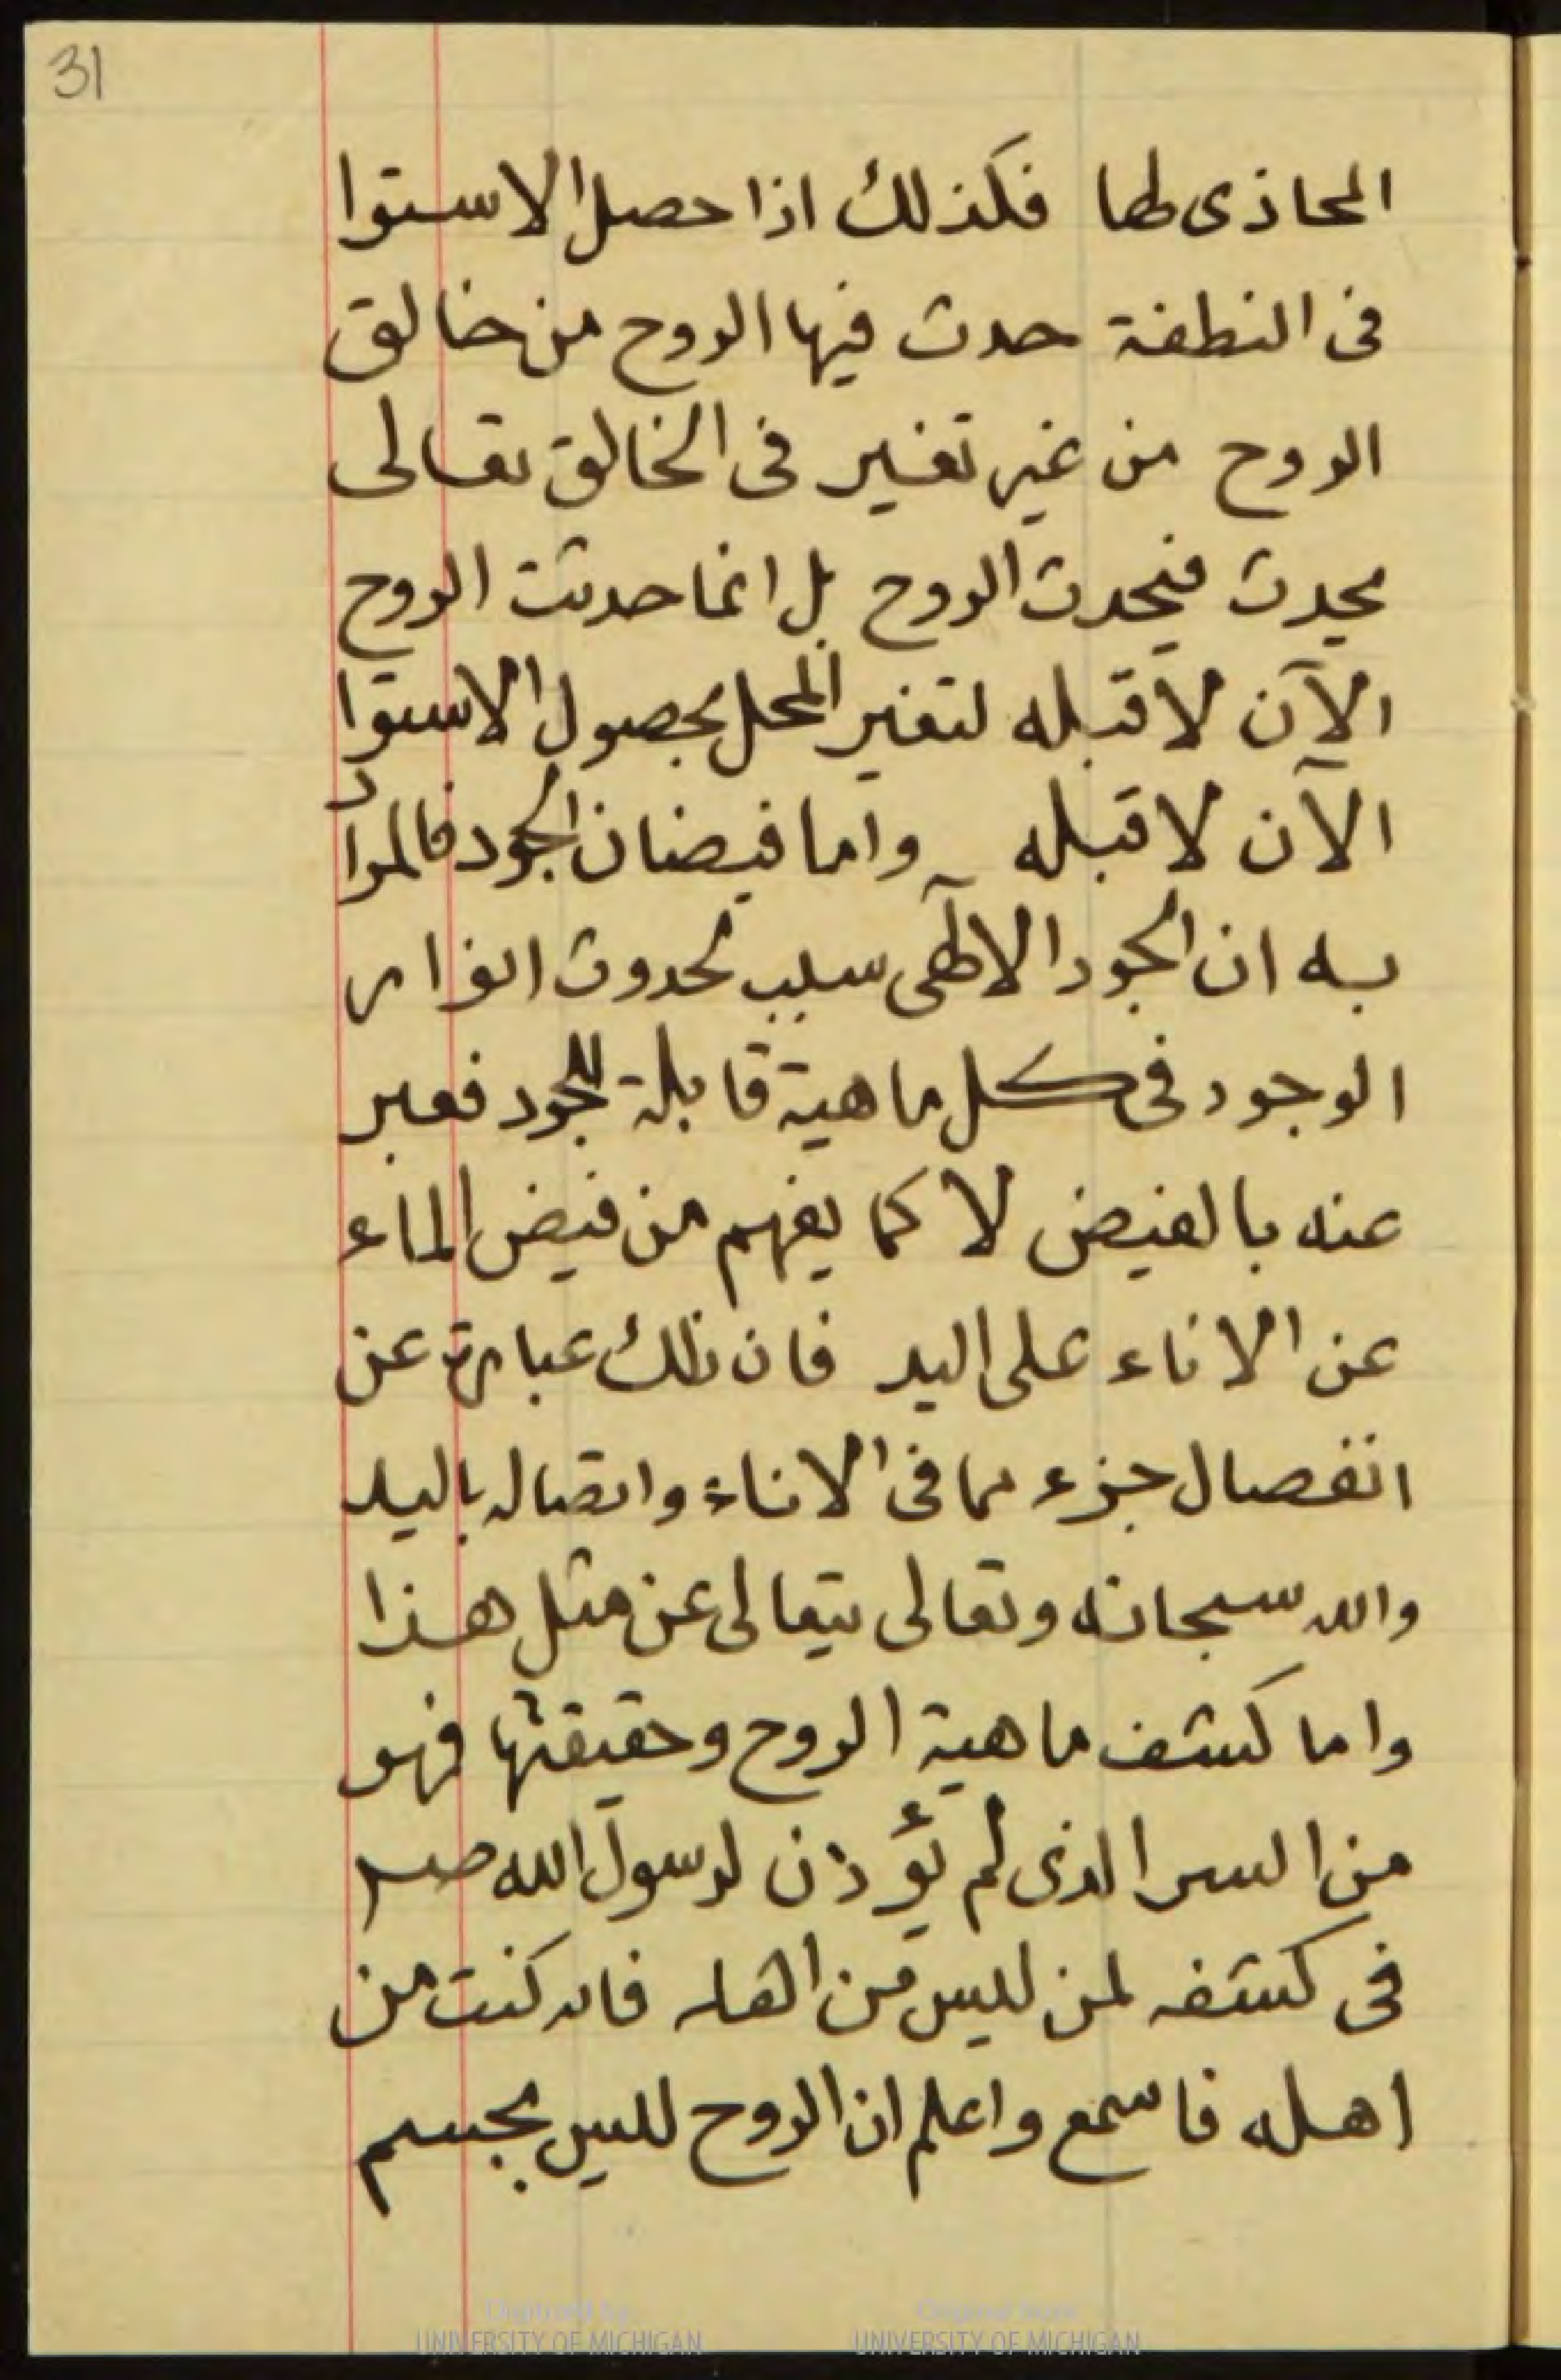 31
المحاذى لها فكذلك اذا حصل الاستوا
فى النطفة حدث فيها الروح من خالق
الروح من غير تغير فى الخالق تعالى
يحدث فيحدث الروح بل انما حدثت الروح
الآن لا قبله لتغير المحل بحصول الاستوا
الآن لا قبله واما فيضان الجود فالمراد
به ان الجود الالٓهى سبب لحدوث انوار
الوجود فى كل ماهية قابلة للجود فعبر
عنه بالفيض لا كما يفهم من فيض الماء
عن الاناء على اليد فان ذلك عبارة عن
انفصال جزء مما فى الاناء واتصاله باليد
والله سبحانه وتعالى يتعالى عن مثل هذا
واما كشف ماهية الروح وحقيقتها فهو
من السر الذى لم يؤذن لرسول الله صلعم
فى كشفه لمن ليس من اهله فان كنت من
اهله فاسمع واعلم ان الروح لليس بجسم
Digitized by
UNIVERSITY OF MICHIGAN
Original from
UNIVERSITY OF MICHIGAN